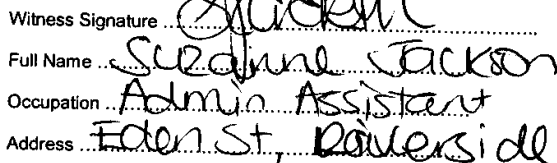 Witness Signature
Full Name Suzanne Jackson
Occupation Admin Assistant
Address Eden St, Riverside